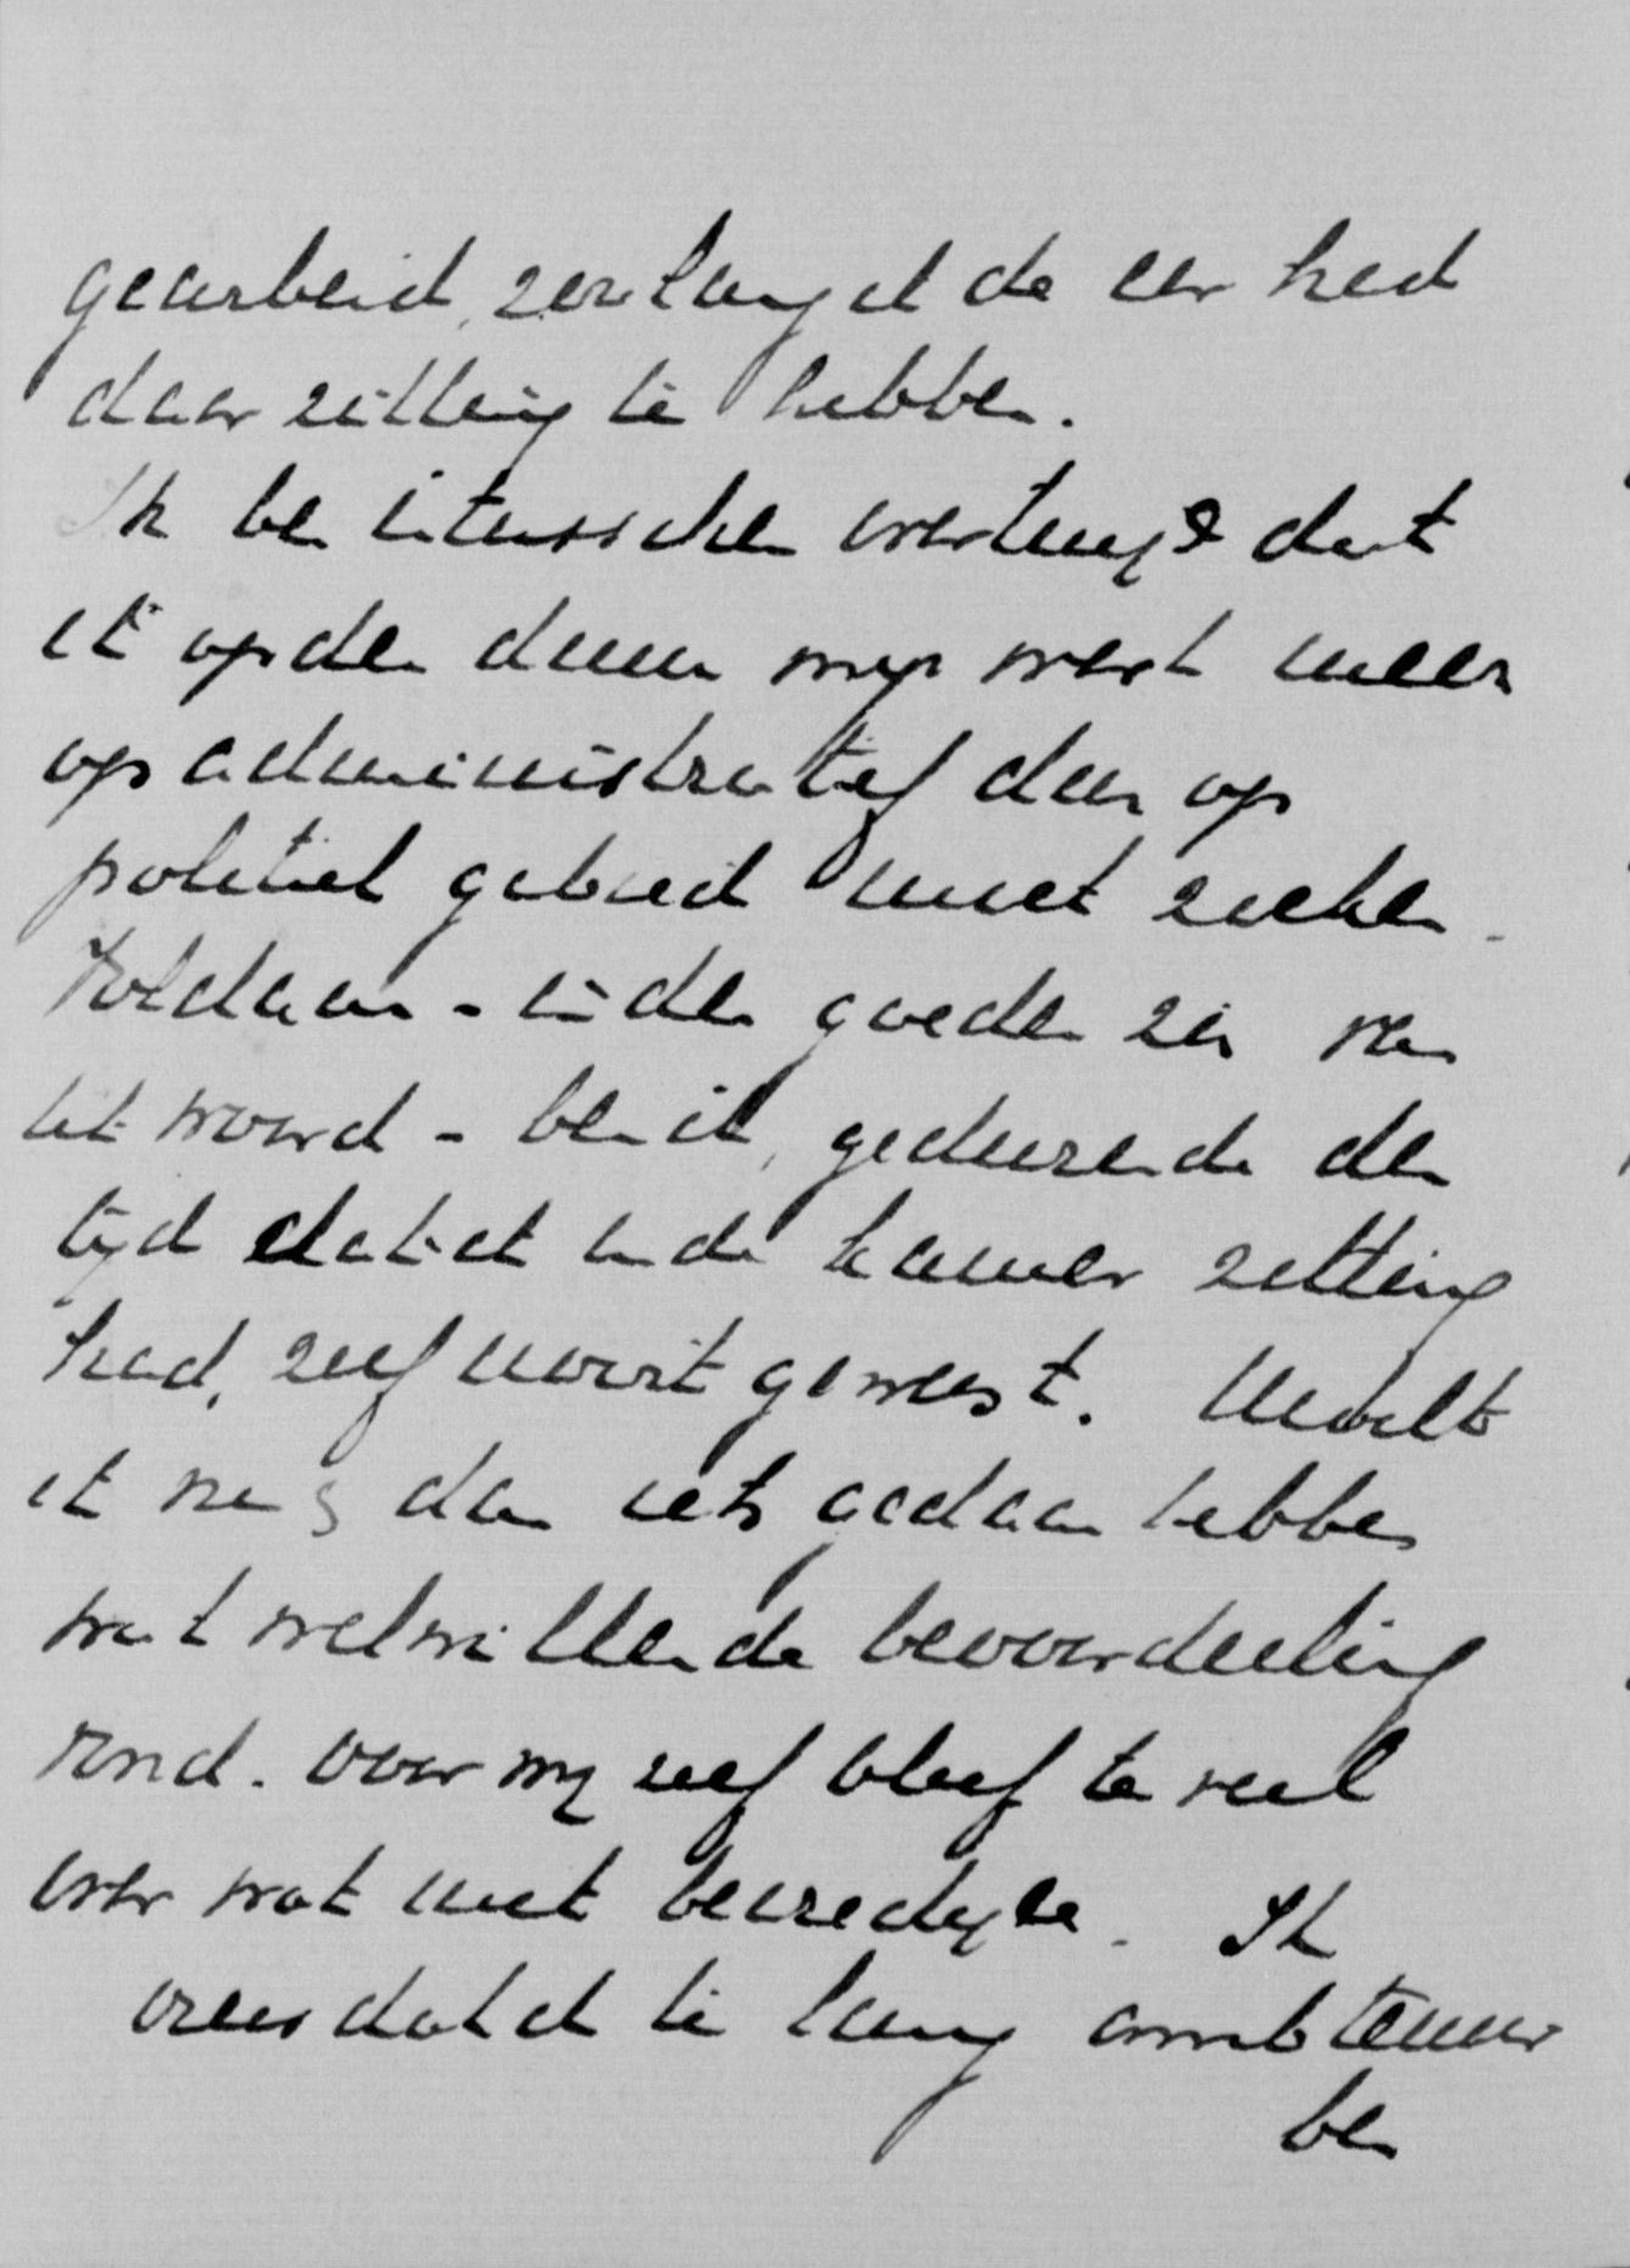 gearbeid, zoolang ik de eer had
daar zitting te hebben.
Ik ben intusschen overtuigd dat
ik op den duur mijn werk meer
op administratief dan op
politiek gebied moet zoeken.
Voldaan - in den goeden zin van
het woord - ben ik, gedurende den
tijd dat ik in de kamer zitting
had, zelf nooit geweest. Mocht
ik nu en dan iets gedaan hebben
wat welwillende beoordeeling
vond. voor mij zelf bleef te veel
over wat niet bevredigde. Ik
vrees dat ik te lang ambtenaar
ben